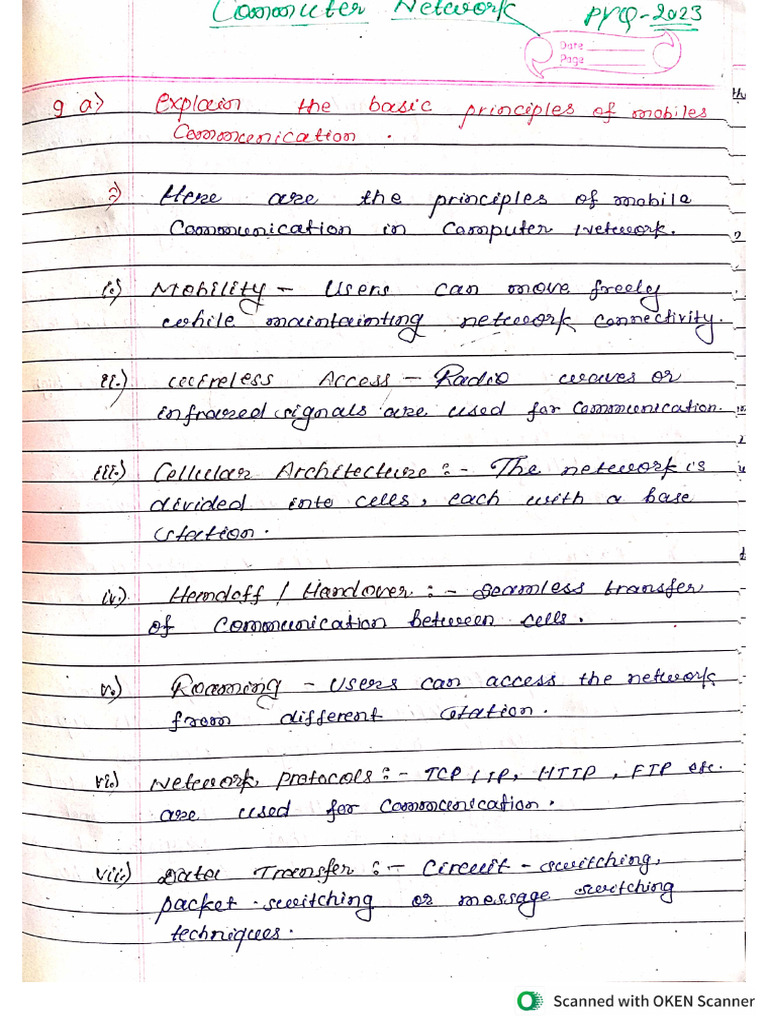 Commuter Network PYQ-2023
Date
Page
9 a) Explain the basic principles of mobiles
Communication.
Here are the principles of mobile
Communication in Computer Network.
i.) Mobility - Users can move freely
while maintainting network connectivity.
ii.) Wireless Access - Radio waves or
infrared signals are used for Communication.
iii.) Cellular Architecture :- The network is
divided into cells, each with a base
station.
iv.) Handoff / Handover :- Seamless transfer
of Communication between cells.
v.) Roaming - Users can access the network
from different station.
vi.) Network protocols :- TCP / IP, HTTP, FTP etc.
are used for Communication.
vii.) Data Transfer :- Circuit - switching,
packet - switching or message switching
techniques.
Scanned with OKEN Scanner